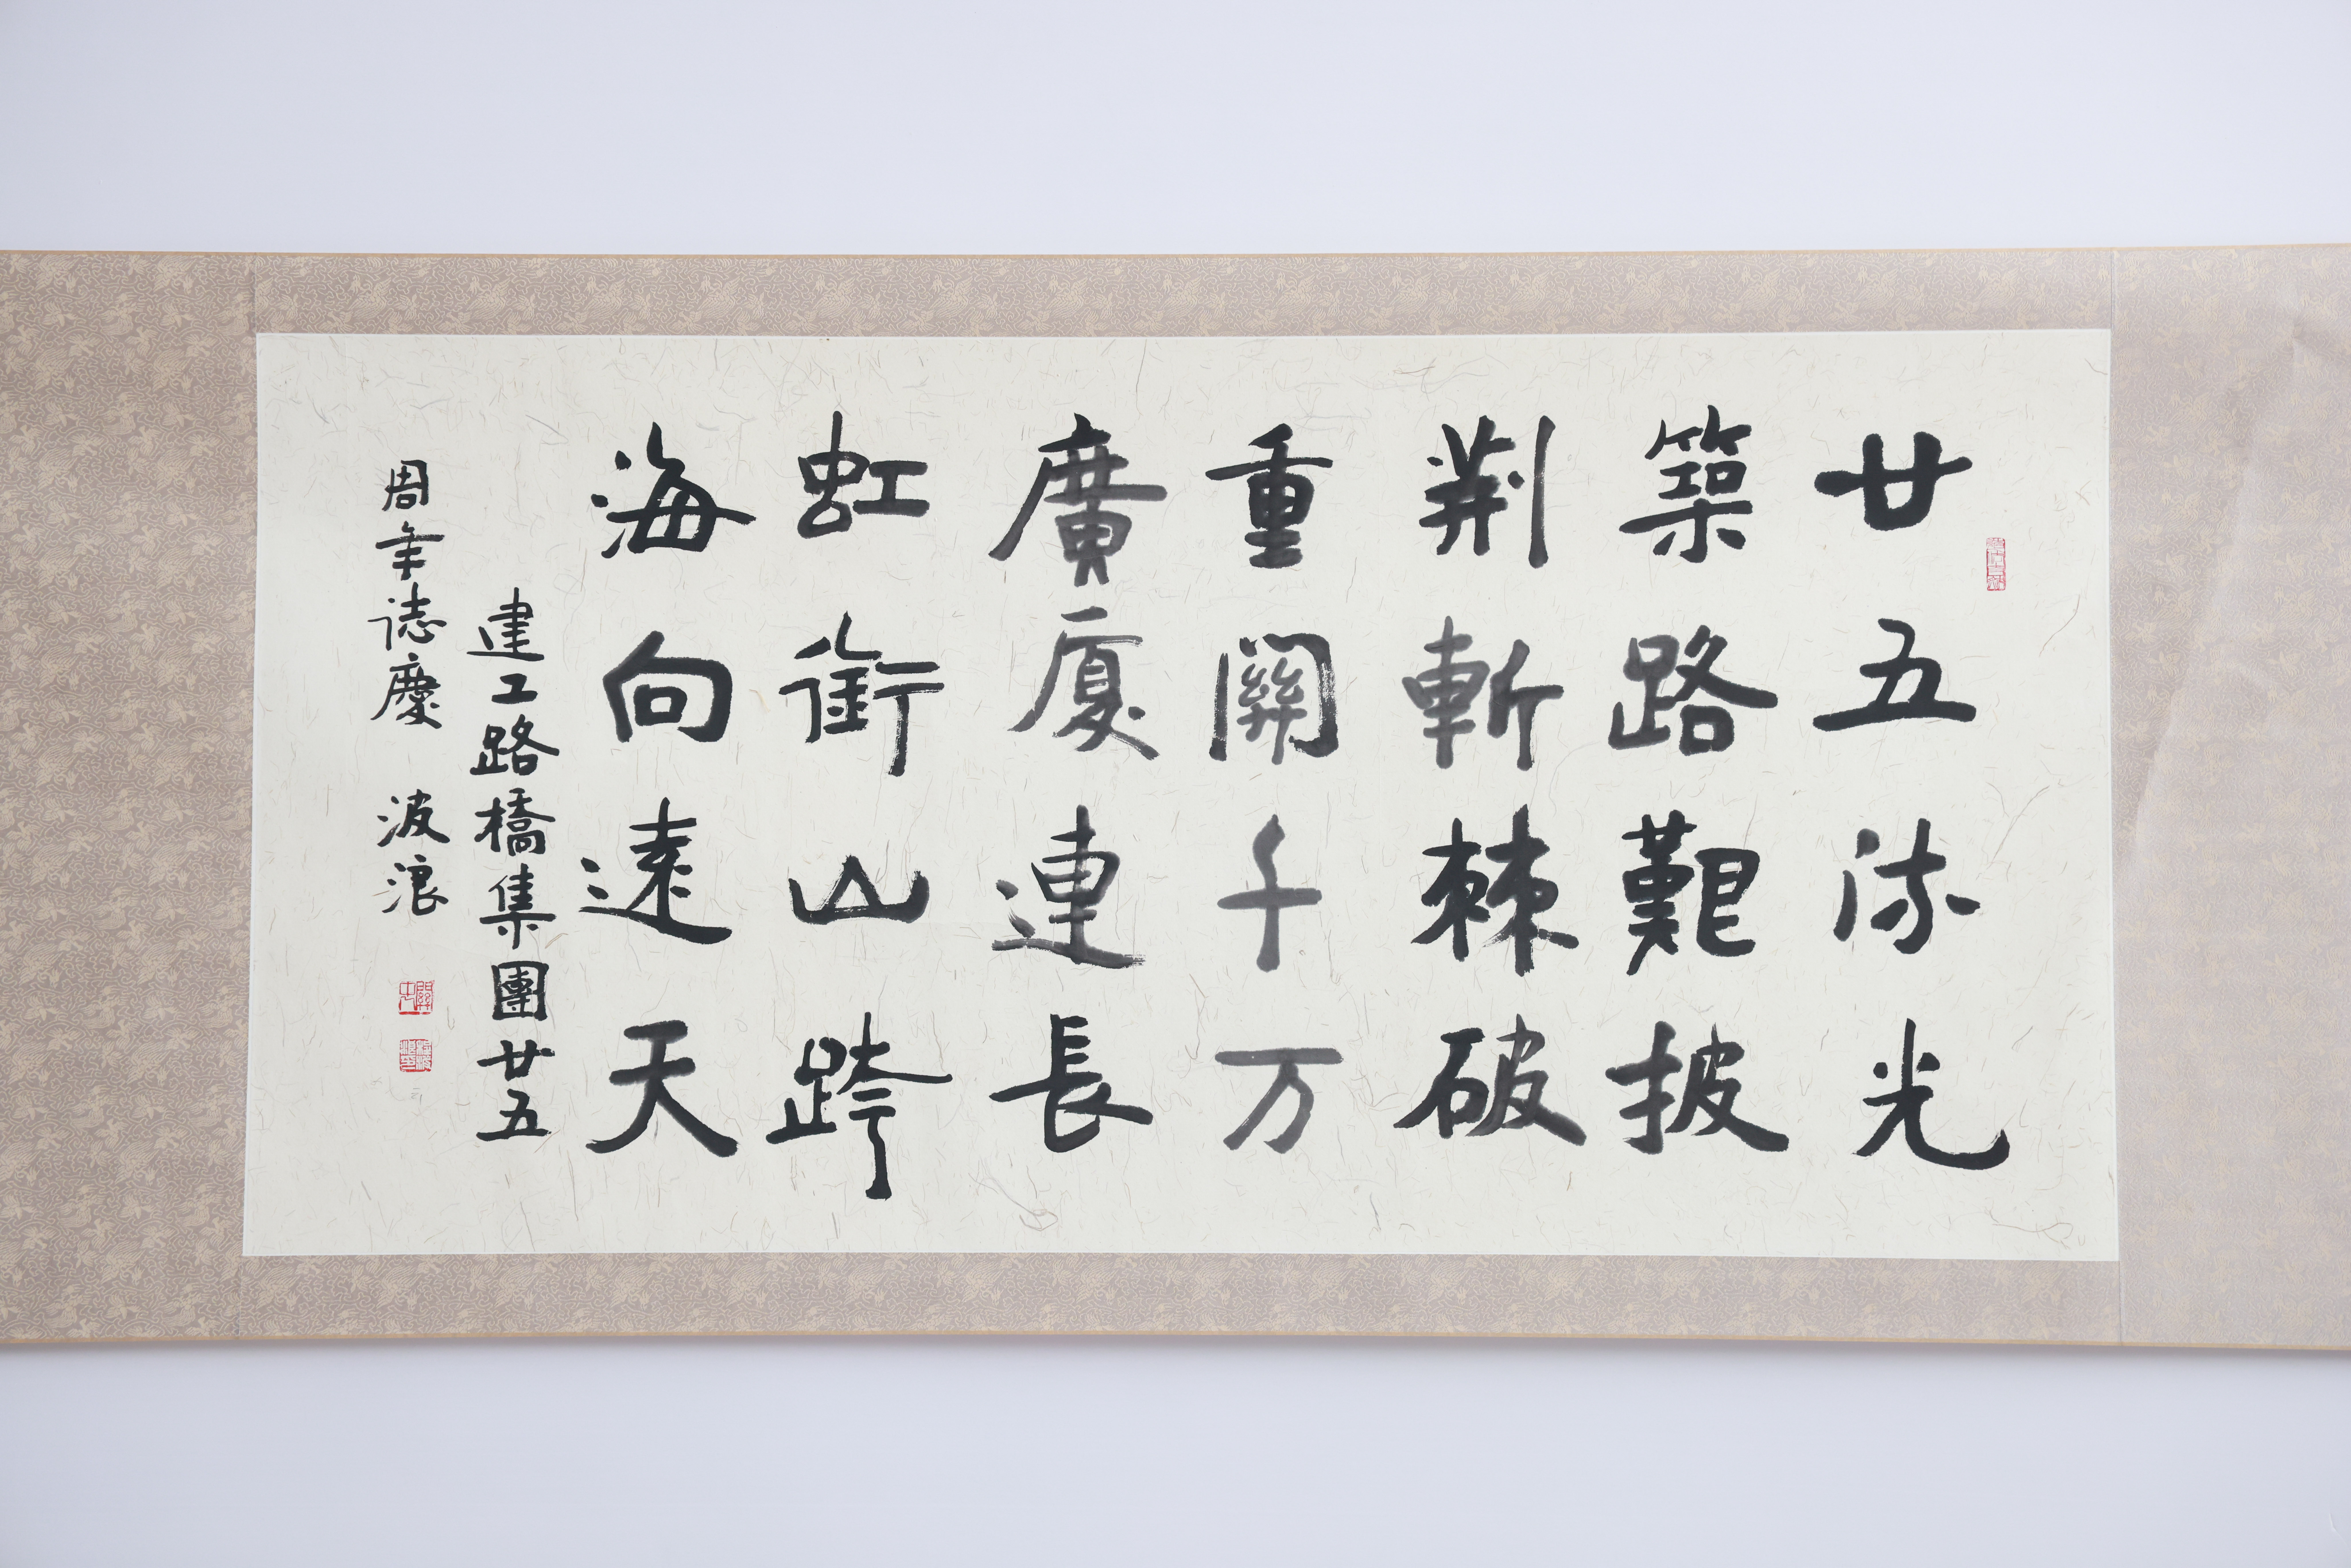 廿五流光
築路艱披
荆斬棘破
重關千万
廣廈連長
虹銜山跨
海向遠天
建工路橋集團廿五
周年誌慶 波浪